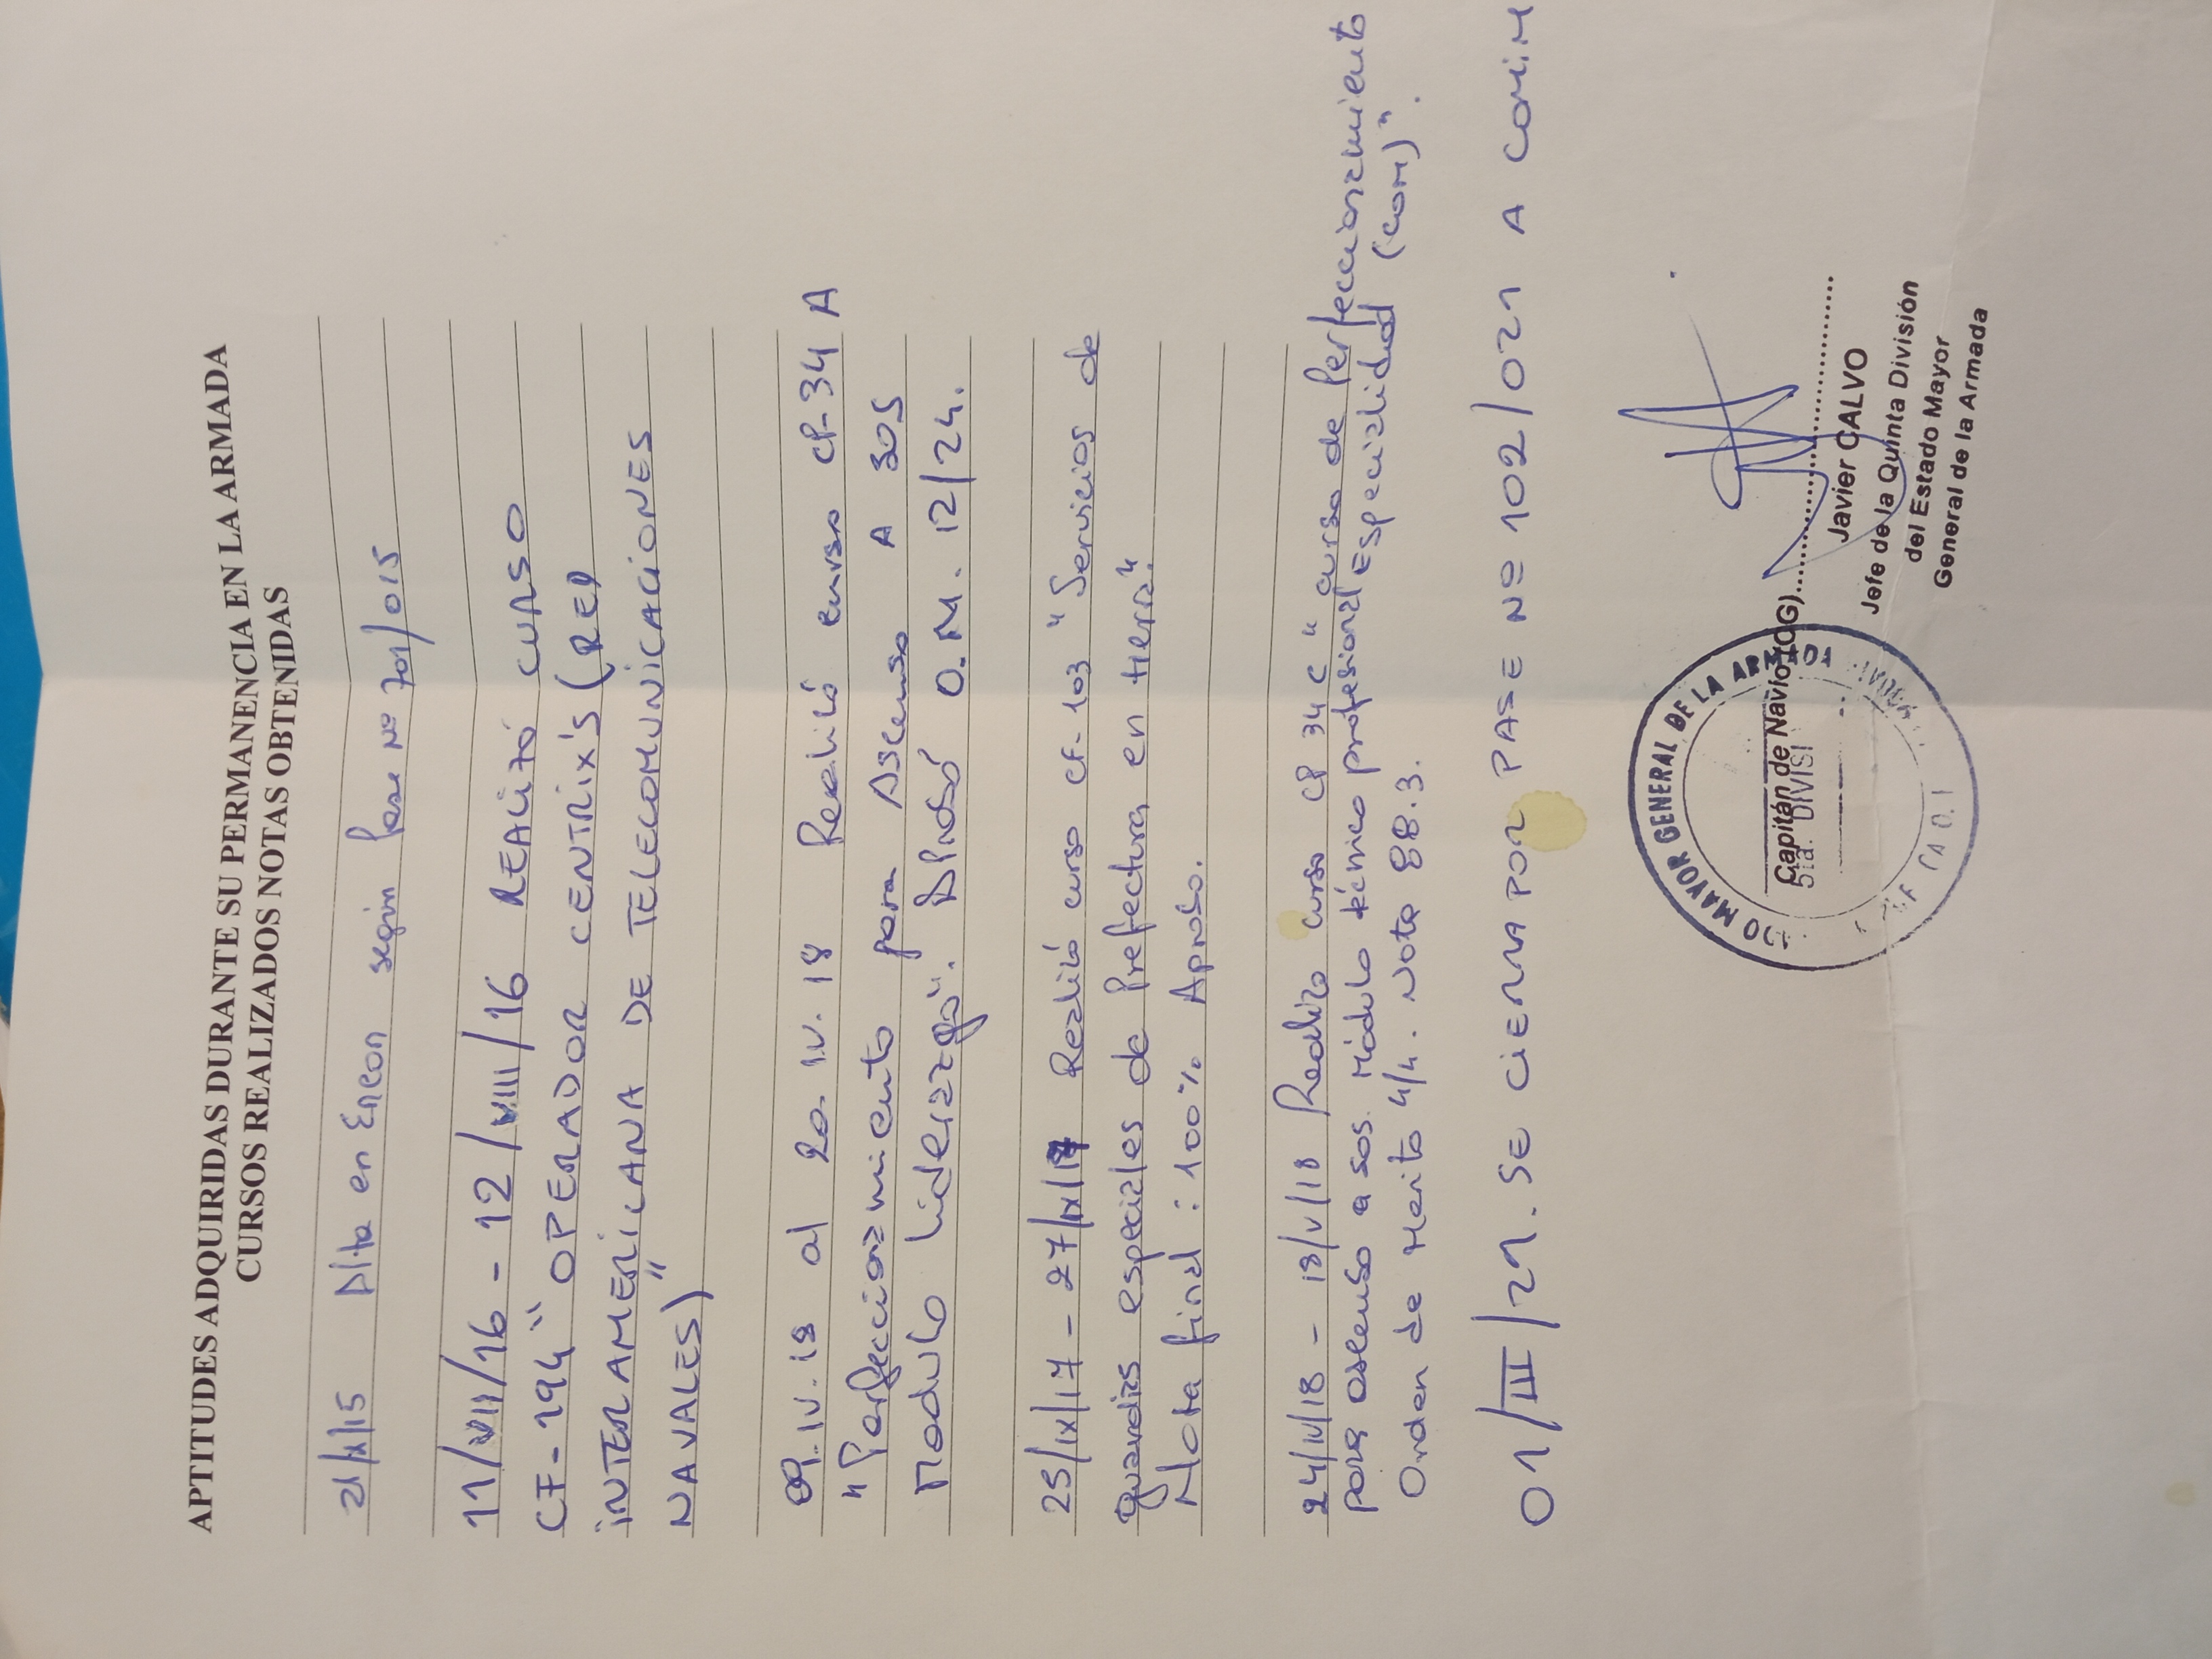 APTITUDES ADQUIRIDAS DURANTE SU PERMANENCIA EN LA ARMADA
CURSOS REALIZADOS NOTAS OBTENIDAS
21/IX/15 Alta en Encon según Pase Nº 701/015
11/VIII/16 - 12/VIII/16 REALIZÓ CURSO
CF-194 " OPERADOR CENTRIX'S (RED
INTERAMERICANA DE TELECOMUNICACIONES
NAVALES)"
09.IV.18 al 20.IV.18 Realizó curso CP-34 A
"Perfeccionamiento para Ascenso A SOS
Modulo liderazgo". Aprobó O.M. 12/24.
25/IX/17 - 27/IX/17 Realizó curso CF-103 "Servicios de
guardias especiales de Prefectura en tierra".
Nota final : 100% Aprobo.
24/IV/18 - 18/V/18 Realizo curso CP 34 C " curso de Perfeccionamiento
para ascenso a sos. Módulo técnico profesional Especialidad (COM)".
Orden de Merito 4/4. Nota 88.3.
01/III/21. SE CIERRA POR PASE Nº 102/021 A COMIM
Capitán de Navío (CG)
Javier CALVO
Jefe de la Quinta División
del Estado Mayor
General de la Armada
DO MAYOR GENERAL DE LA ARMADA
5ta. DIVISI